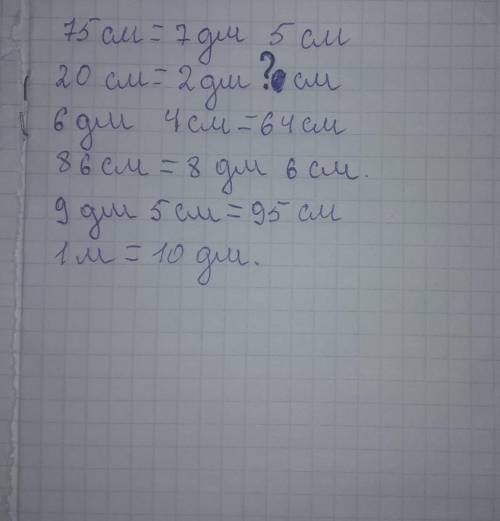 75 см = 7 дм 5 см
20 см = 2 дм ? см
6 дм 4 см = 64 см
86 см = 8 дм 6 см.
9 дм 5 см = 95 см
1 м = 10 дм.